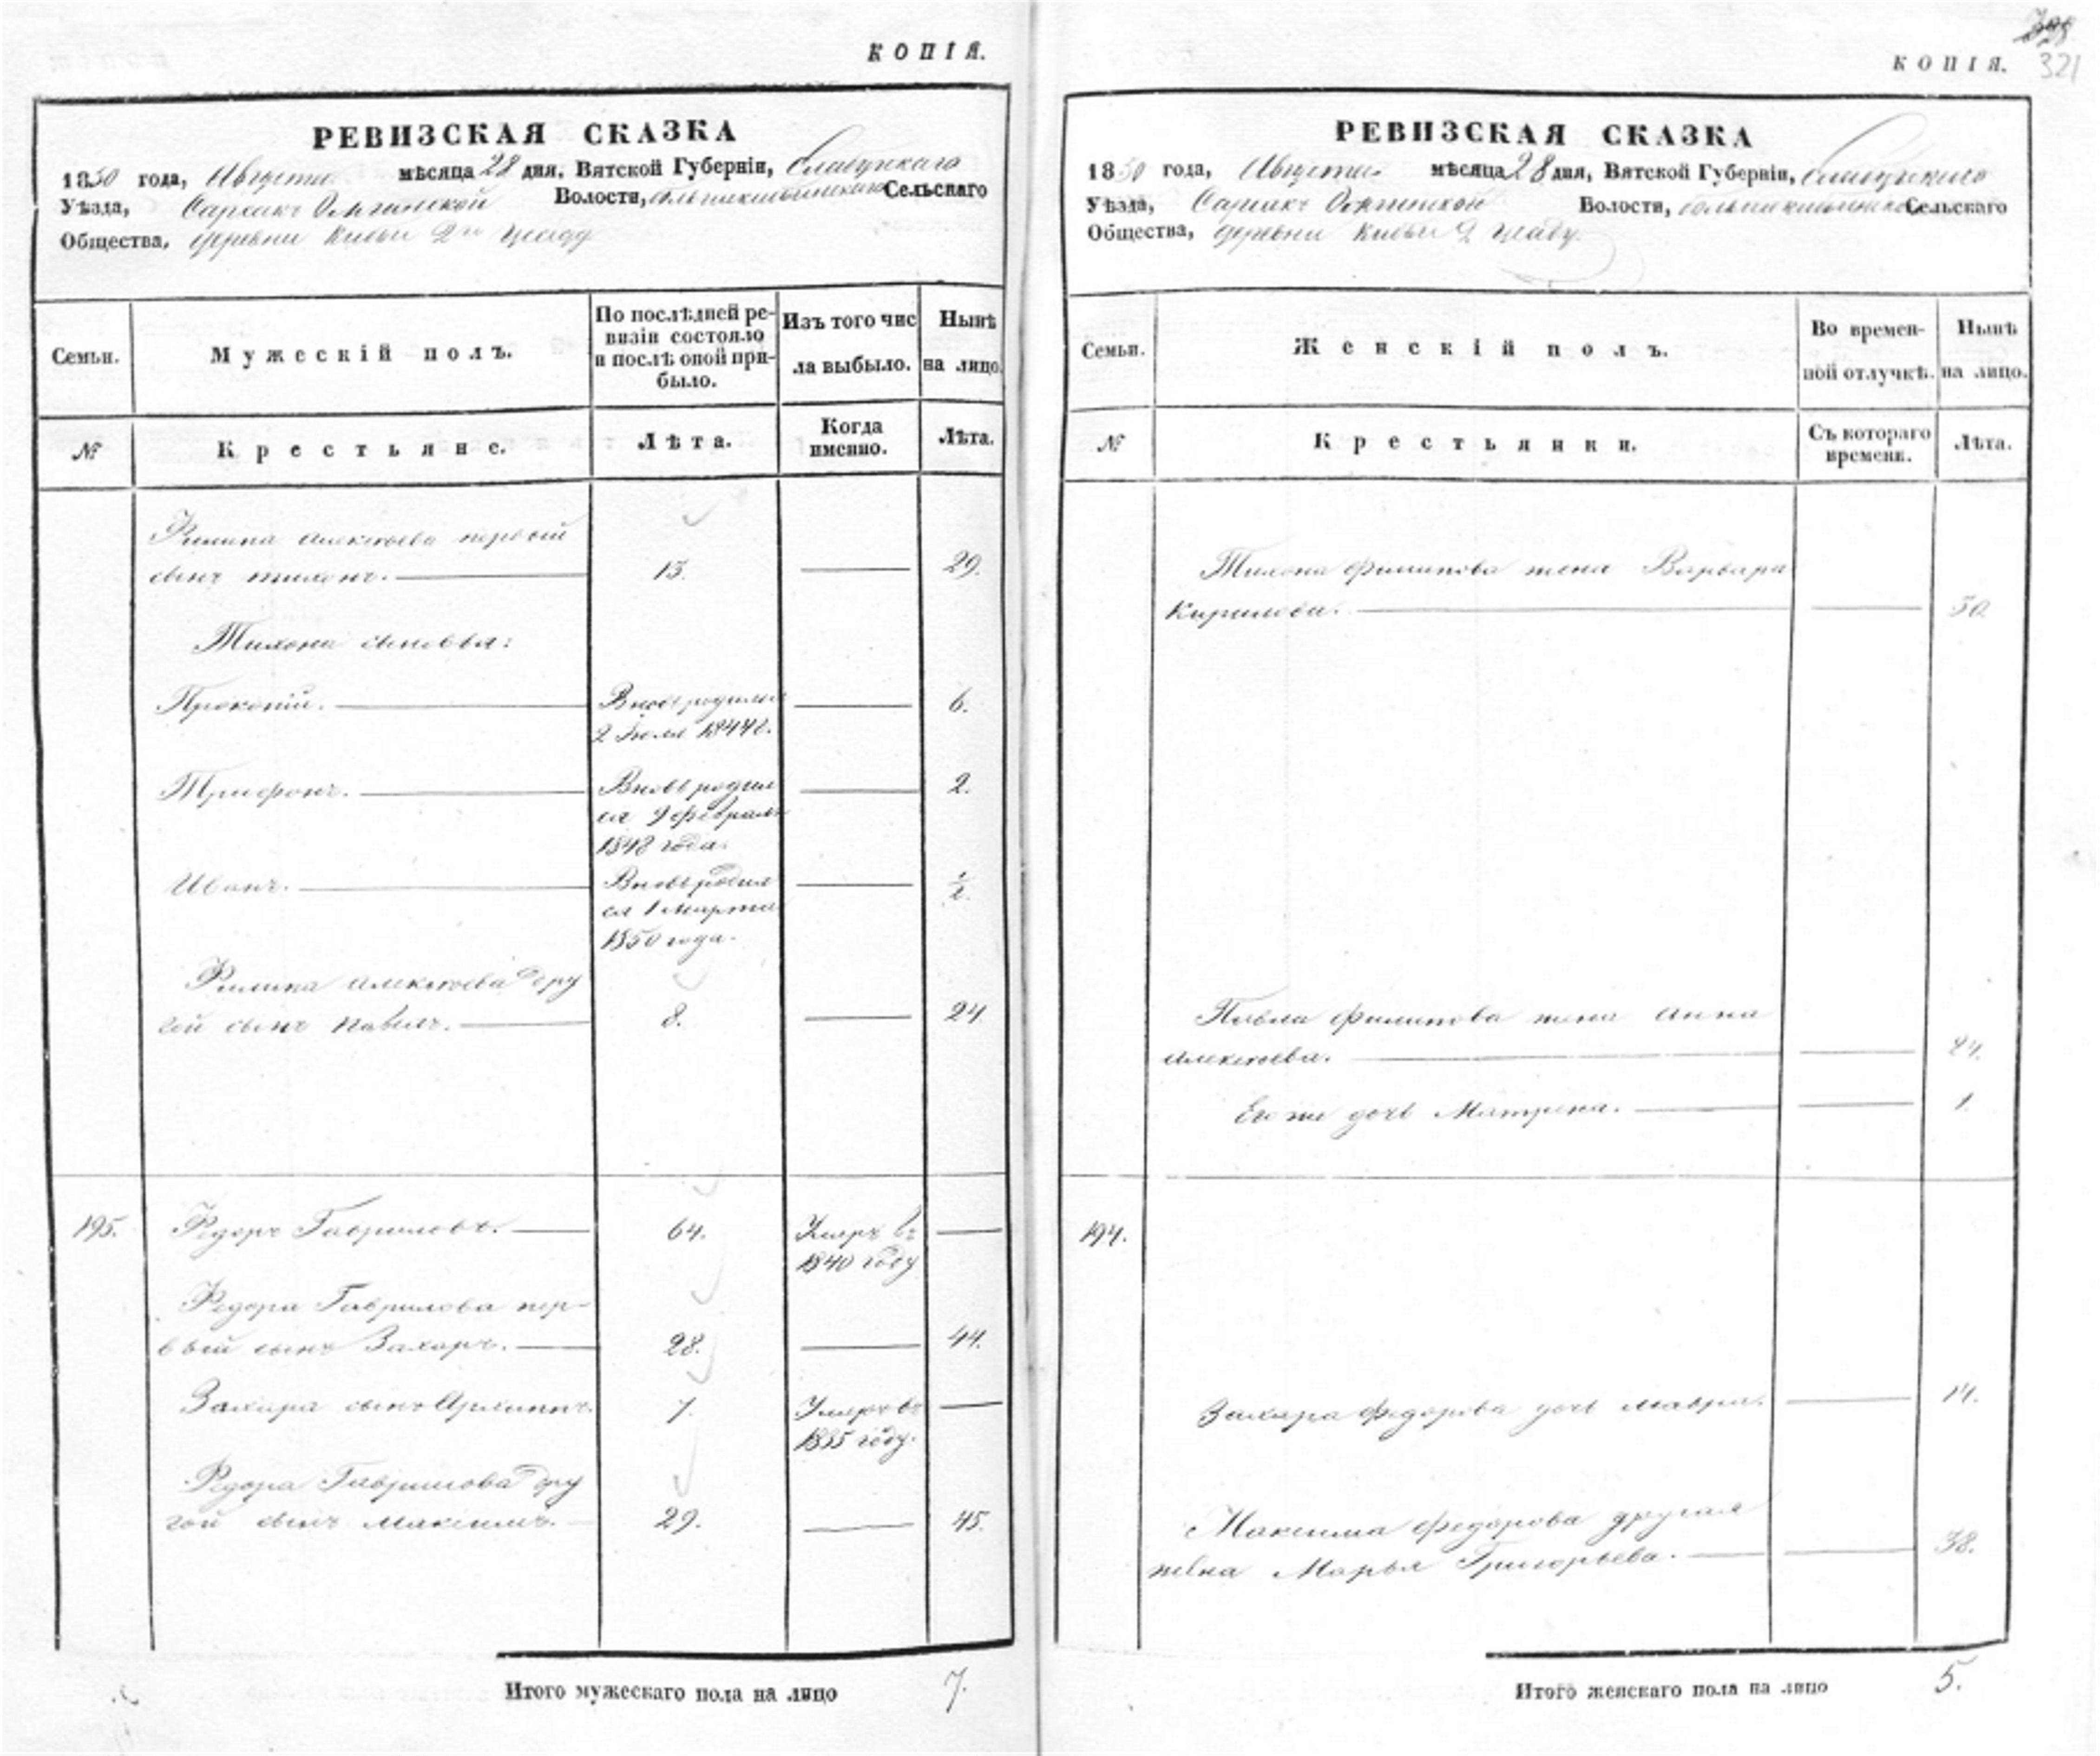 КОПІЯ.
РЕВИЗСКАЯ СКАЗКА
1850 года, Августа мѣсяца 28 дня, Вятской Губерніи,
Уѣзда, Волости, Сельскаго
Общества, деревни
Семьи.
Мужескій полъ.
По послѣдней ре-
визіи состояло
и послѣ оной при-
было.
Изъ того чис
ла выбыло.
Нынѣ
на лицо.
№
Крестьяне.
Лѣта.
Когда
именно.
Лѣта.
Филипа Алексѣева первый
сынъ Тихонъ. 13. 29.
Тихона сыновья:
Прокопій. Вновь родился 6.
2 Іюля 1844 г.
Трифонъ. Вновь родил 2.
ся 9 февраля
1848 года.
Иванъ. Вновь родил 1/2.
ся 1 марта
1850 года.
Филипа Алексѣева дру
гой сынъ Павелъ. 8. 24.
195. Федоръ Гавриловъ. 64. Умеръ въ
1840 году
Федора Гаврилова пер-
вый сынъ Захаръ. 28. 44.
Захара сынъ Архиппъ. 7. Умеръ въ
1835 году.
Федора Гаврилова дру
гой сынъ Максимъ. 29. 45.
Итого мужескаго пола на лицо 7.
321
КОПІЯ.
РЕВИЗСКАЯ СКАЗКА
1850 года, Августа мѣсяца 28 дня, Вятской Губерніи,
Уѣзда, Волости, Сельскаго
Общества, деревни
Семьи.
Женскій полъ.
Во времен-
ной отлучкѣ.
Нынѣ
на лицо.
№
Крестьянки.
Съ котораго
времени.
Лѣта.
Тихона Филипова жена Варвара
Кирилова. 30.
Павла Филипова жена Анна
Алексѣева. 24.
Его же дочь Матрена. 1.
194.
Захара Федорова дочь Мавра. 14.
Максима Федорова другая
жена Марья Григорьева. 38.
Итого женскаго пола на лицо 5.